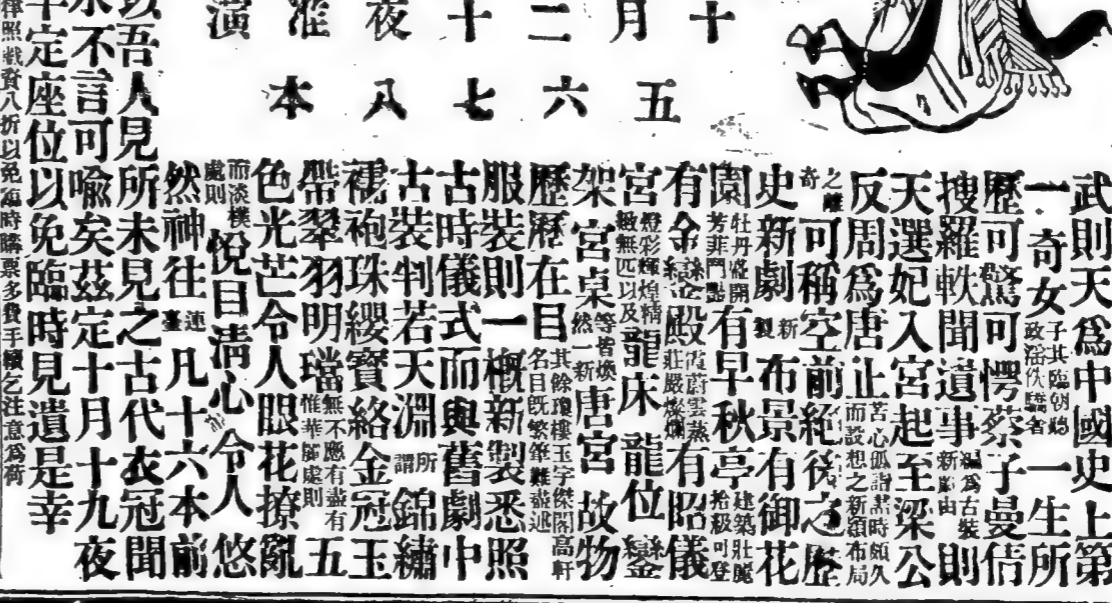 十月二十夜准演
五六七八本
武則天爲中國史上第
一奇女子其臨朝聽政淫佚驕奢一生所
歷可驚可愕蔡子曼倩
搜羅軼聞遺事編爲古裝新劇由則
天選妃入宮起至梁公
反周爲唐止苦心孤詣其時頗久而設想之新穎布局
之離奇可稱空前絕後之歷
史新劇新製布景有御花
園牡丹盛開芳菲鬥豔有早秋亭建築壯麗拾級可登
有金鑾殿霞蔚雲蒸莊嚴燦爛有昭儀
宮燈彩輝煌精緻無匹以及龍床龍位鑾
架宮桌等皆煥然一新唐宮故物
歷歷在目其餘瓊樓玉宇傑閣高軒名目既繁筆難盡述
服裝則一概新製悉照
古時儀式而與舊劇中
古裝判若天淵所謂錦繡
襦袍珠纓寶絡金冠玉
帶翠羽明璫無不應有盡有惟華麗處則五
色光芒令人眼花撩亂
而淡樸處則悅目清心令人悠
然神往連臺凡十六本前
以吾人見所未見之古代衣冠聞
不言可喻矣茲定十月十九夜
早定座位以免臨時見遺是幸
律照戲資八折以免臨時購票多費手續乞注意爲荷